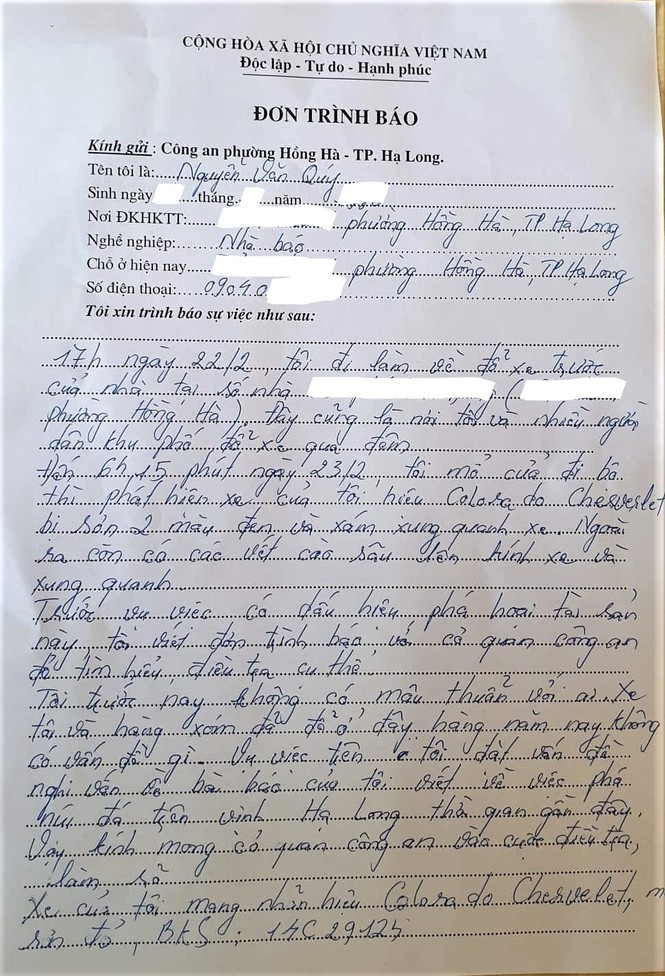 CỘNG HÒA XÃ HỘI CHỦ NGHĨA VIỆT NAM
Độc lập - Tự do - Hạnh phúc
ĐƠN TRÌNH BÁO
Kính gửi : Công an phường Hồng Hà - TP. Hạ Long.
Tên tôi là: Nguyễn Văn Qúy
Sinh ngày tháng năm
Nơi ĐKHKTT: phường Hồng Hà, TP Hạ Long
Nghề nghiệp: Nhà báo
Chỗ ở hiện nay phường Hồng Hà, TP Hạ Long
Số điện thoại: 0904.0
Tôi xin trình báo sự việc như sau:
17h ngày 22/2, tôi đi làm về đỗ xe trước
cửa nhà tại số nhà (
phường Hồng Hà). Đây cũng là nơi tôi và nhiều người
dân khu phố đỗ xe qua đêm
Đến 6h 15 phút ngày 23/2, tôi mở cửa đi bộ
thì phát hiện xe của tôi hiệu Colorado Cherverlet
bị sơn 2 màu đen và xám xung quanh xe. Ngoài
ra còn có các vết cào sâu lên kính xe và
xung quanh
Trước vụ việc có dấu hiệu phá hoại tài sản
này, tôi viết đơn trình báo với cơ quan công an
để tìm hiểu, điều tra cụ thể.
Tôi trước nay không có mâu thuẫn với ai. Xe
tôi và hàng xóm đã đỗ ở đây hàng năm nay không
có vấn đề gì. Vụ việc trên tôi đặt vấn đề
nghi vấn về bài báo của tôi viết về việc phá
núi đá trên vịnh Hạ Long thời gian gần đây.
Vậy kính mong cơ quan công an vào cuộc điều tra,
làm rõ
Xe của tôi mang nhãn hiệu Colorado Cherverlet, m
sơn đỏ, BKS: 14C 29124